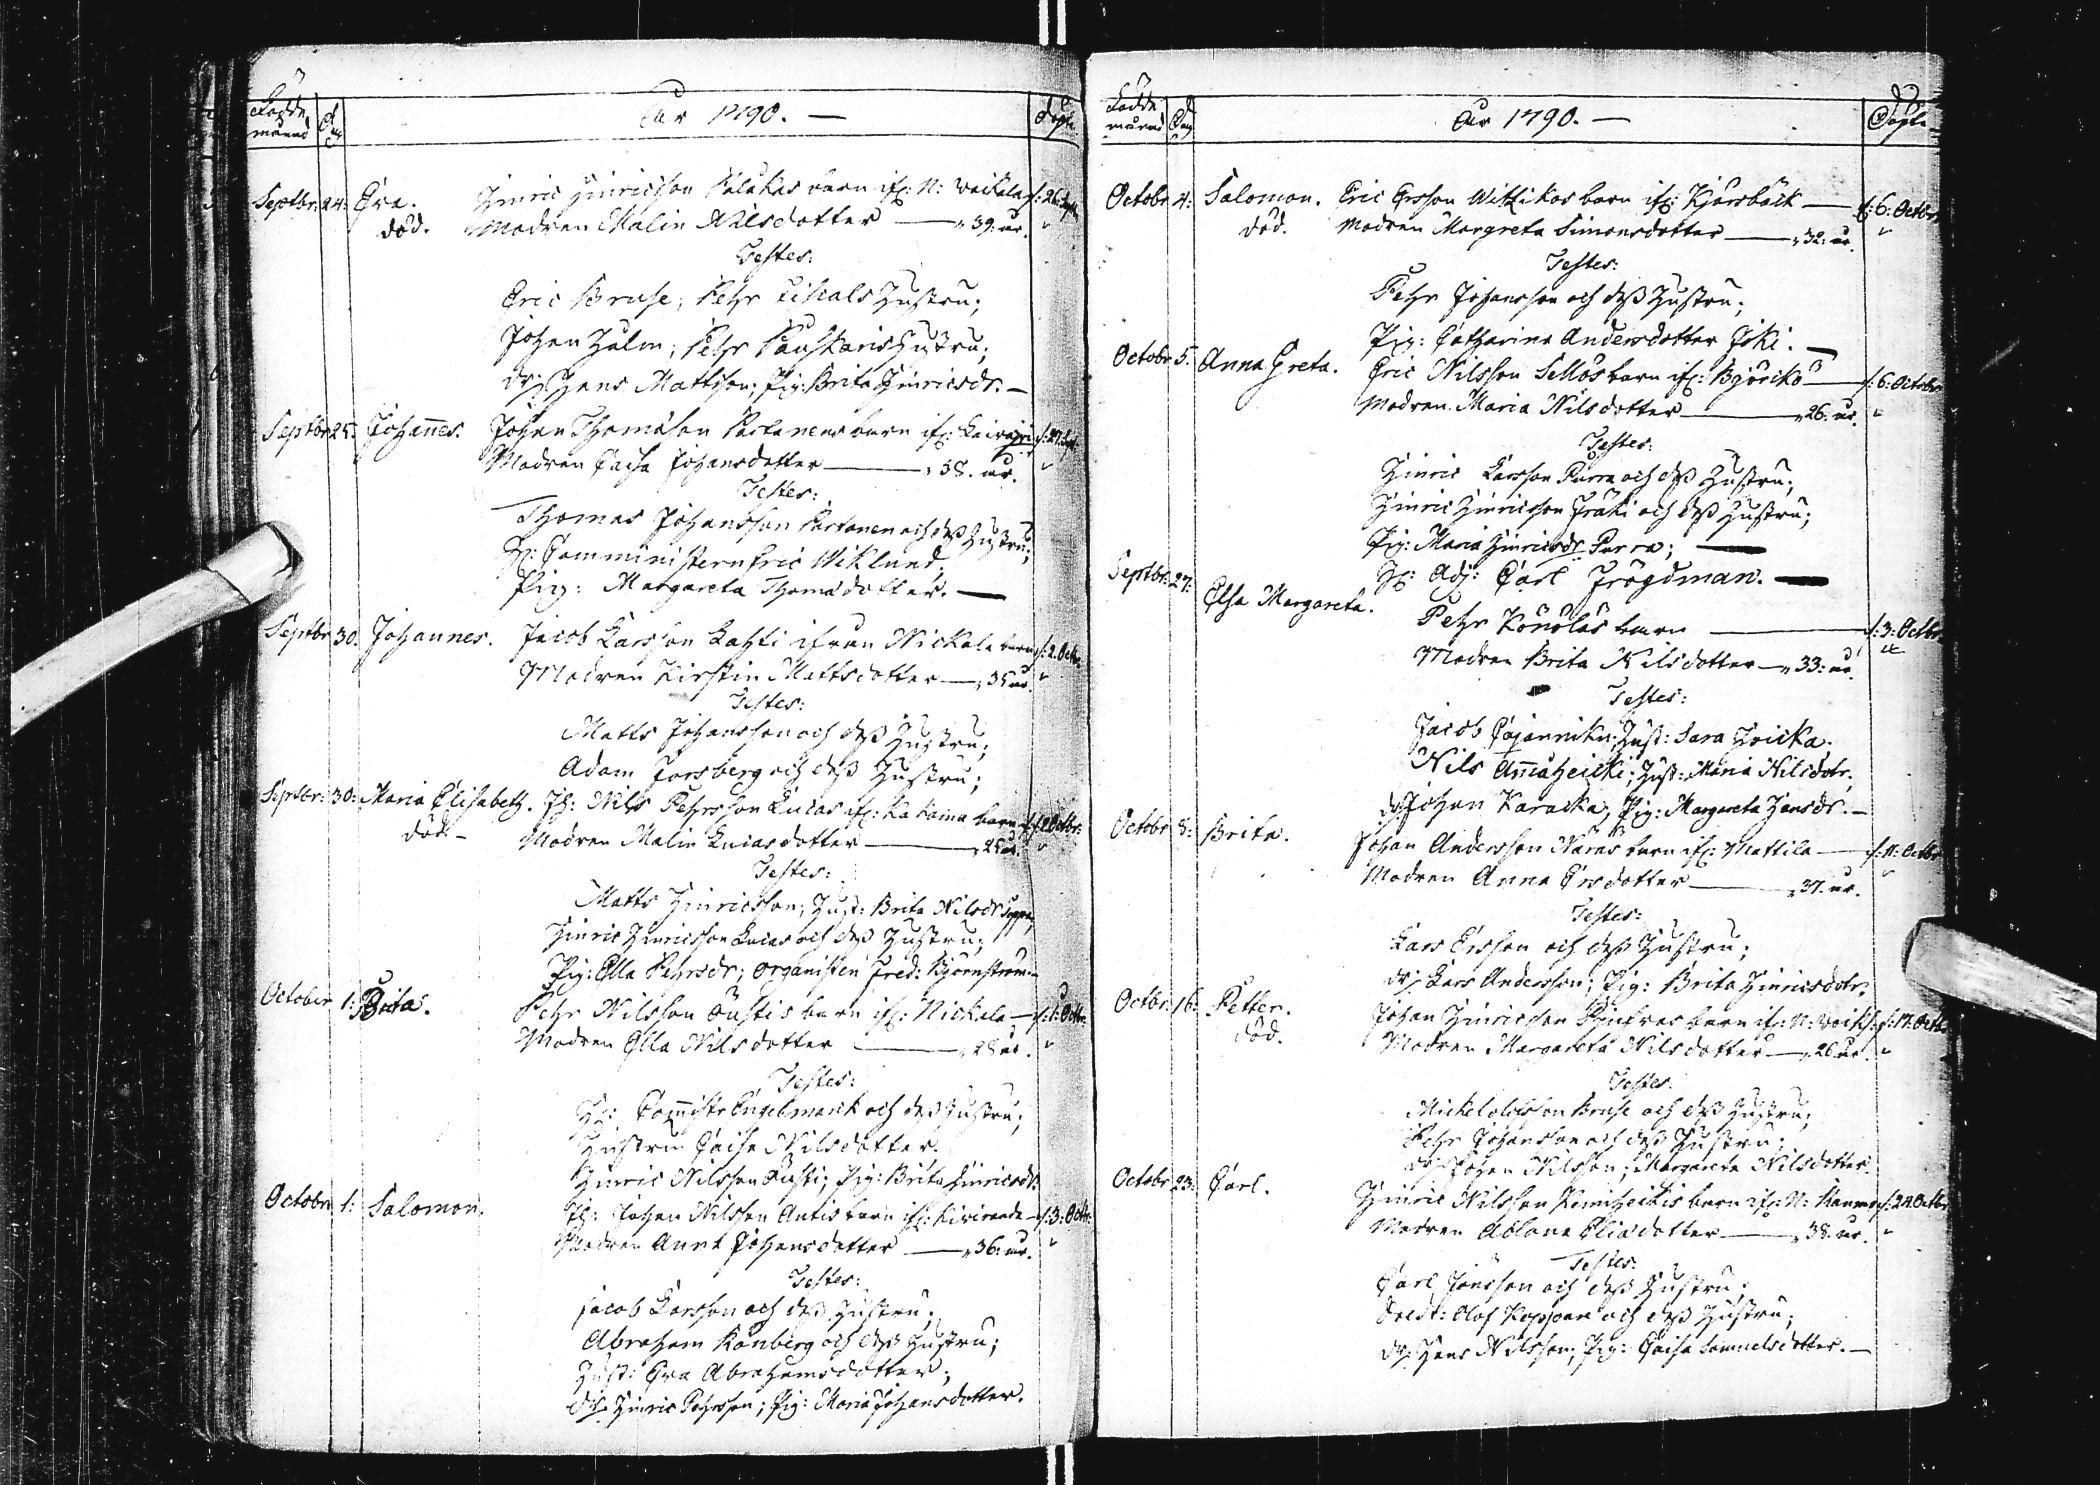 Födde månad Dag År 1790. — Döpte
Septbr: 24: Eva. Hinric Hinricsson Palakas barn ifr: N: Woickala d: 26. Sept.
död. Modren Malin Nilsdotter — „ 39. år. "
Testes:
Eric Bruse; Pehr Hustru;
Johan Halm; Pehr Hustru;
dr: Hans Mattsson; Pig: Brita Hinricsdr. —
Septbr 25: Johannes. Johan Thomasson Partanens barn ifr: d: 27. Sept.
Modren Caisa Johansdotter — „ 38. år. "
Testes:
Thomas Johansson Partanen och dess Hustru;
Hr: Comministern Eric Wiklund.
Pig: Margareta Thomædotter. —
Septbr 30. Johannes. Jacob Larsson Lahti ifrån Nickala barn d: 2. Octbr.
Modren Kirstin Mattsdotter — „ 35 år. "
Testes:
Matts Johansson och dess Hustru;
Adam Forsberg och dess Hustru;
Septbr: 30: Maria Elisabeth. Nils Pehrsson Lucas ifr: Kakama barn d: 1. Octbr:
död. — Modren Malin Lucasdotter — „ 25 år. "
Testes:
Matts Hinricsson; Hust: Brita Nilsdr
Hinric Hinricsson Lucas och dess Hustru;
Pig: Ella Pehrsdr; organisten Fred: Björnström —
October 1: Brita. Pehr Nilsson Austis barn ifr: Nickala — d: 1. Octbr.
Modren Ella Nilsdotter — „ 28 år. "
Testes:
Hr: Engelmark och dess Hustru;
Hustrun Caisa Nilsdotter.
Hinric Nilsson Austi; Pig: Brita Hinricsdr.
Octobr 1: Salomon. Johan Nilsson Antis barn ifr: Kiviranda — d: 3: Octbr.
Modren Anna Johansdotter — „ 36: år. "
Testes:
Jacob Larsson och dess Hustru;
Abraham Rönberg och dess Hustru;
Hust: Eva Abrahamsdotter;
dr: Hinric Pehrsson; Pig: Maria Johansdotter.
Födde månad Dag År 1790. — Döpte
Octobr 4: Salomon. Eric Ersson Wittikos barn ifr: Kjärsbäck — d: 6: Octbr.
död. Modren Margreta Simonsdotter — „ 32. år. "
Testes:
Pehr Johansson och dess Hustru;
Pig: Catharina Andersdotter Joki. —
Octobr 5. Anna Greta. Eric Nilsson barn ifr: Björkö — d: 6: Octobr
Modren Maria Nilsdotter — „ 26. år. "
Testes:
Hinric Larsson Purra och dess Hustru;
Hinric Hinricsson Fräki och dess Hustru;
Pig: Maria Hinricsdr Purra; —
Hr: Adj: Carl Frögdman. —
Septbr: 27: Elsa Margareta. Pehr Könölös barn — d: 3: Octbr.
Modren Brita Nilsdotter — „ 33: år.
Testes:
Jacob Hust: Sara
Nils Hust: Maria Nilsdotr.
dr: Johan Karacka; Pig: Margareta Hansdr. —
Octobr 8: Brita. Johan Andersson Naras barn ifr: Mattila — d: 11: Octbr
Modren Anna Ersdotter — „ 37. år. "
Testes:
Lars Ersson och dess Hustru;
dr: Lars Andersson; Pig: Brita Hinricsdotr.
Octbr: 16: Petter. Johan Hinricsson barn ifr: N: Woick: d: 17. Octbr
död. Modren Margareta Nilsdotter — „ 26 år. "
Testes.
Mickel Olofsson Bruse och dess Hustru;
Pehr Johansson och dess Hustru;
dr: Johan Nilsson; Margareta Nilsdotter.
Octobr 23: Carl. Hinric Nilsson barn ifr: N: Raumo d: 24 Octbr
Modren Ablona Eliædotter — „ 38. år. "
Testes:
Carl Jönsson och dess Hustru;
Olof och dess Hustru;
dr: Hans Nilsson; Pig: Caisa Samuelsdotter. —